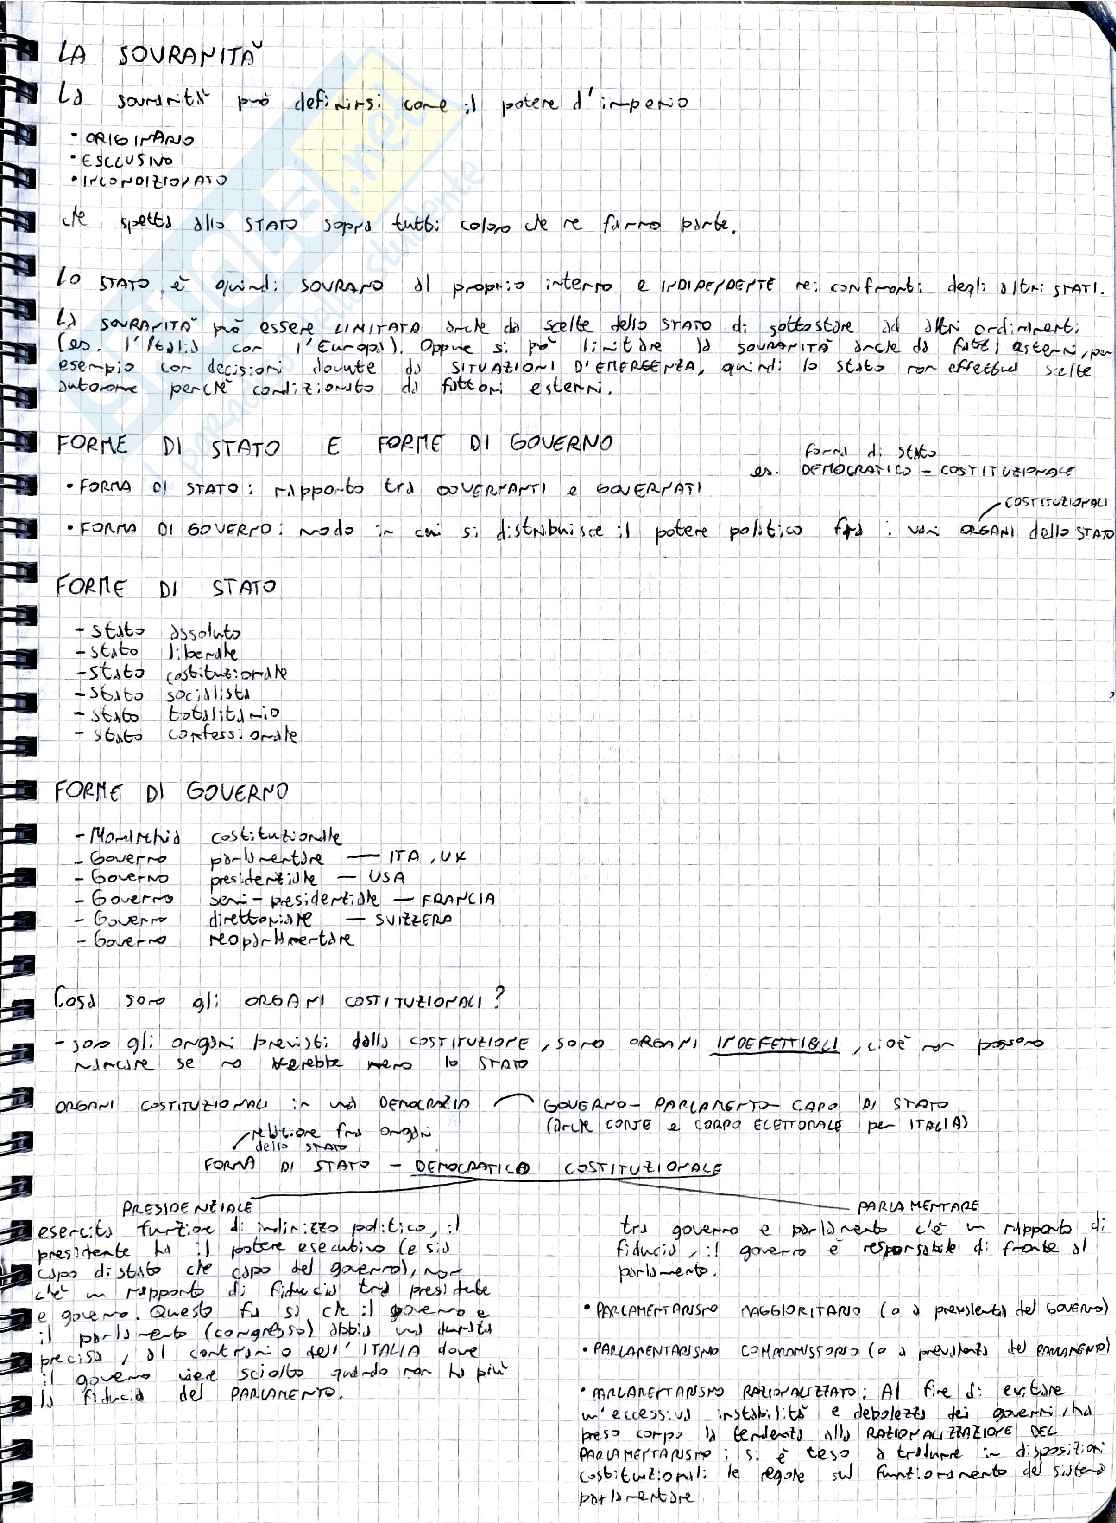 LA SOVRANITÀ
La sovranità può definirsi come il potere d'imperio
• ORIGINARIO
• ESCLUSIVO
• INCONDIZIONATO
che spetta allo STATO sopra tutti coloro che ne fanno parte.
Lo STATO è quindi SOVRANO al proprio interno e INDIPENDENTE nei confronti degli altri STATI.
LA SOVRANITÀ può essere LIMITATA anche da scelte dello STATO di sottostare ad altri ordinamenti
(es. l'Italia con l'Europa). Oppure si può limitare la SOVRANITÀ anche da fatti esterni, per
esempio con decisioni dovute da SITUAZIONI D'EMERGENZA, quindi lo stato non effettua scelte
autonome perchè condizionato da fattori esterni.
FORME DI STATO E FORME DI GOVERNO
forma di stato
es. DEMOCRATICO - COSTITUZIONALE
• FORMA DI STATO: rapporto tra GOVERNANTI e GOVERNATI
COSTITUZIONALI
• FORMA DI GOVERNO: modo in cui si distribuisce il potere politico fra i vari ORGANI dello STATO
FORME DI STATO
- stato assoluto
- stato liberale
- stato costituzionale
- stato socialista
- stato totalitario
- stato confessionale
FORME DI GOVERNO
- Monarchia costituzionale
- Governo parlamentare — ITA, UK
- Governo presidenziale — USA
- Governo semi-presidenziale — FRANCIA
- Governo direttoriale — SVIZZERA
- Governo neoparlamentare
Cosa sono gli ORGANI COSTITUZIONALI?
- sono gli organi previsti dalla COSTITUZIONE, sono ORGANI INDEFETTIBILI, cioè non possono
mancare se no verrebbe meno lo STATO
ORGANI COSTITUZIONALI in una DEMOCRAZIA GOVERNO - PARLAMENTO - CAPO DI STATO
(anche CORTE e CORPO ELETTORALE per ITALIA)
relazione fra organi
dello STATO
FORMA DI STATO - DEMOCRATICO COSTITUZIONALE
PRESIDENZIALE
esercita funzione di indirizzo politico, il
presidente ha il potere esecutivo (e sia
capo di stato che capo del governo), non
c'è un rapporto di fiducia tra presidente
e governo. Questo fa sì che il governo e
il parlamento (congresso) abbia una durata
precisa, al contrario dell'ITALIA dove
il governo viene sciolto quando non ha più
la fiducia del PARLAMENTO.
PARLAMENTARE
tra governo e parlamento c'è un rapporto di
fiducia, il governo è responsabile di fronte al
parlamento.
• PARLAMENTARISMO MAGGIORITARIO (o a prevalenza del GOVERNO)
• PARLAMENTARISMO COMPROMISSORIO (o a prevalenza del PARLAMENTO)
• PARLAMENTARISMO RAZIONALIZZATO: Al fine di evitare
un'eccessiva instabilità e debolezza dei governi, ha
preso corpo la tendenza alla RAZIONALIZZAZIONE DEL
PARLAMENTARISMO; si è teso a tradurre in disposizioni
costituzionali le regole sul funzionamento del sistema
parlamentare.